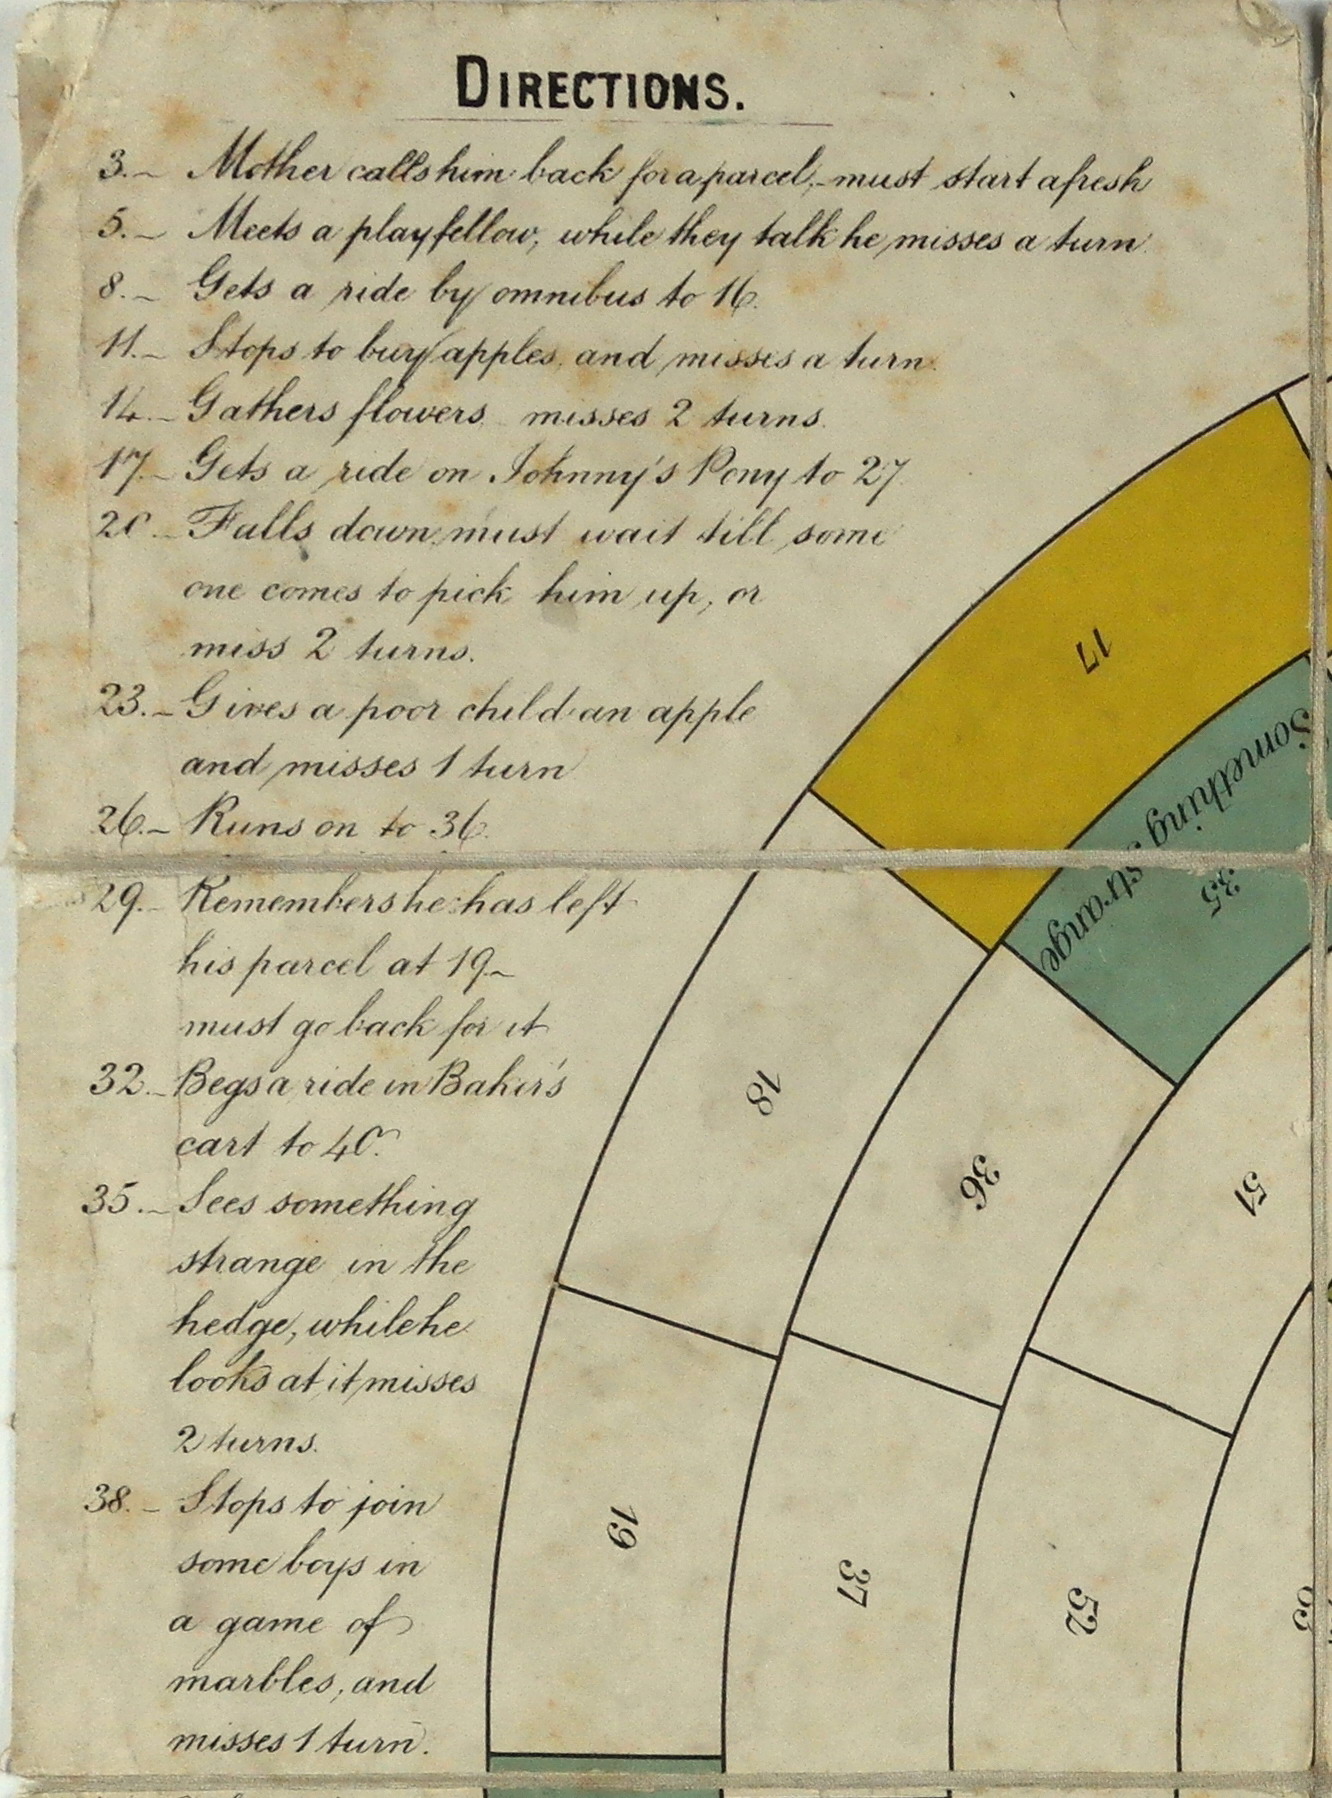 DIRECTIONS.
3. - Mother calls him back for a parcel, - must start afresh
5. - Meets a playfellow, while they talk he misses a turn.
8. - Gets a ride by omnibus to 16.
11. - Stops to buy apples, and misses a turn.
14. - Gathers flowers, misses 2 turns.
17. - Gets a ride on Johnny's Pony to 27.
20. - Falls down, must wait till some
one comes to pick him up, or
miss 2 turns.
23. - Gives a poor child an apple
and misses 1 turn
26. - Runs on to 36.
29. - Remembers he has left
his parcel at 19 -
must go back for it
32. - Begs a ride in Baker's
cart to 40.
35. - Sees something
strange in the
hedge, while he
looks at it misses
2 turns.
38. - Stops to join
some boys in
a game of
marbles, and
misses 1 turn.
17
Something strange
35
18
36
51
19
37
52